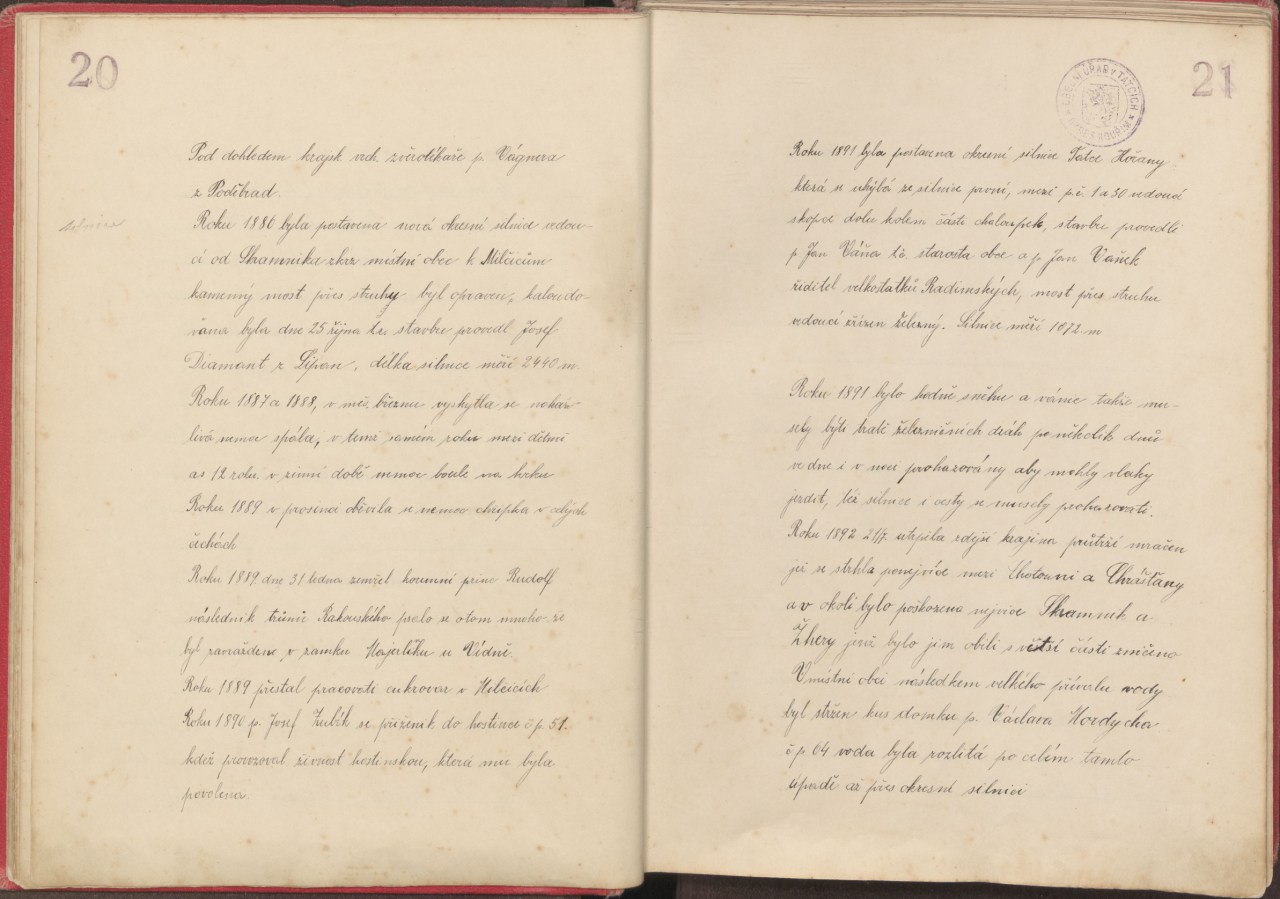 20
Pod dohledem krajsk vrch. zvěrolékaře p. Vágnera
z Poděbrad.
silnice
Roku 1886 byla postavena nová okresní silnice vedou-
cí od Skramníka zkrz místní obec k Milčicům
kamenný most přes struhy byl opraven, kolaudo-
vána byla dne 25 října t.r. stavbu provedl Josef
Diamant z Lipan, délka silnice měří 2440 m.
Roku 1887 a 1888, v měs. březnu vyskytla se nakaž
livá nemoc spála, v temž samém roku mezi dětmi
as 12 roků v zimní době nemoc boule na krku
Roku 1889 v prosinci oběvila se nemoc chřipka v celých
čechách
Roku 1889 dne 31 ledna zemřel korunní princ Rudolf
následník trůnu Rakouského psalo se o tom mnoho že
byl zavražděne v zamku Majerliku u Vídně.
Roku 1889 přestal pracovati cukrovar v Milčicích
Roku 1890 p. Josef Zubík se přiženik do hostince čp. 51.
kdiž provozoval živnost hostinskou, která mu byla
povolena.
21
Roku 1891 byla postavena okresní silnice Tatce Hořany
která se uhýbá ze silnice první, mezi p.č. 1 a 30 vedoucí
skopce dolu kolem části chaloupek, stavbu provedli
p Jan Váňa t.č. starosta obce a p. Jan Vaňek
řiditel velkostatků Radimských, most přes struhu
vedoucí zřízen železný. Silnice měří 1072 m
Roku 1891 bylo hodně sněhu a vánic takže mu-
sely býti tratě železničních drah po několik dnů
ve dne i v noci prohazovány aby mohly vlaky
jezdit, též silnice i cesty se musely prohazovati.
Roku 1892 21/7. utrpila zdejší krajina průtrží mračen
jež se strhla ponejvíce mezi Chotouni a Chrášťany
a v okolí bylo poškozena nejvíce Skramník a
Žhery jenž bylo jim obilí s větší části zničeno
V místní obci následkem velkého přívalu vody
byl stržen kus domku p. Václava Hordycha
č p. 64 voda byla rozlitá po celém tamto
úpadě až přes okresní silnici